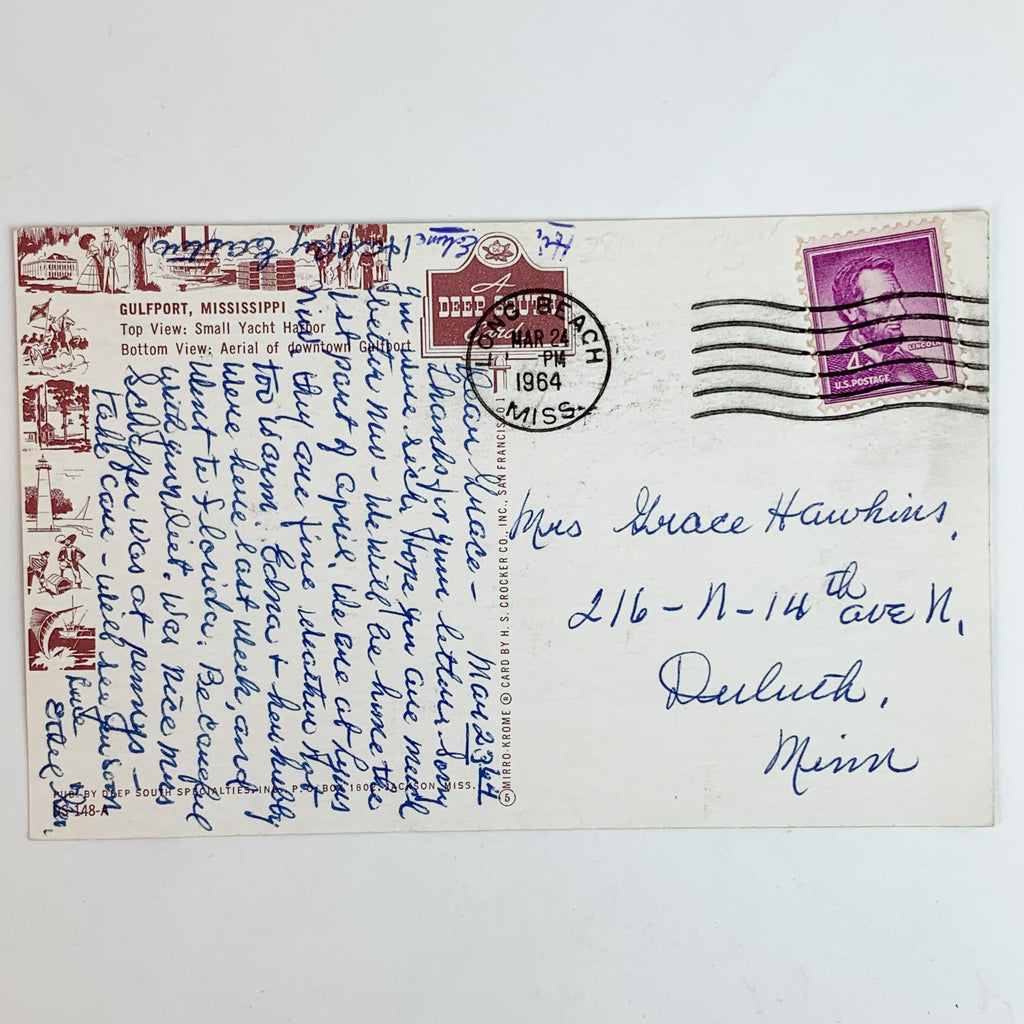 GULFPORT, MISSISSIPPI
Top View: Small Yacht Harbor
Bottom View: Aerial of downtown Gulfport
A
DEEP SOUTH
Card
LONG BEACH
MAR 24
PM
1964
MISS.
4¢
LINCOLN
U.S. POSTAGE
Mar 23 64
Dear Grace —
Thanks for your letter. Sorry
you were sick, Hope you are much
better now — We will be home the
1st part of April. We are at Lynns
now they are fine weather not
too warm. Edna + her hubby
were here last week, and
went to Florida. Be careful
with your diet. Was nice Mrs
Schaffer was at Pennys —
Take care — will see you soon
Love
Ethel +
Happy Easter
Hi,
Mrs Grace Hawkins,
216 – N – 14th ave N,
Duluth,
Minn
MIRRO-KROME ® CARD BY H. S. CROCKER CO., INC., SAN FRANCISCO 1
5
PUB. BY DEEP SOUTH SPECIALTIES, INC., P. O. BOX 1802, JACKSON, MISS.
DS-148-A